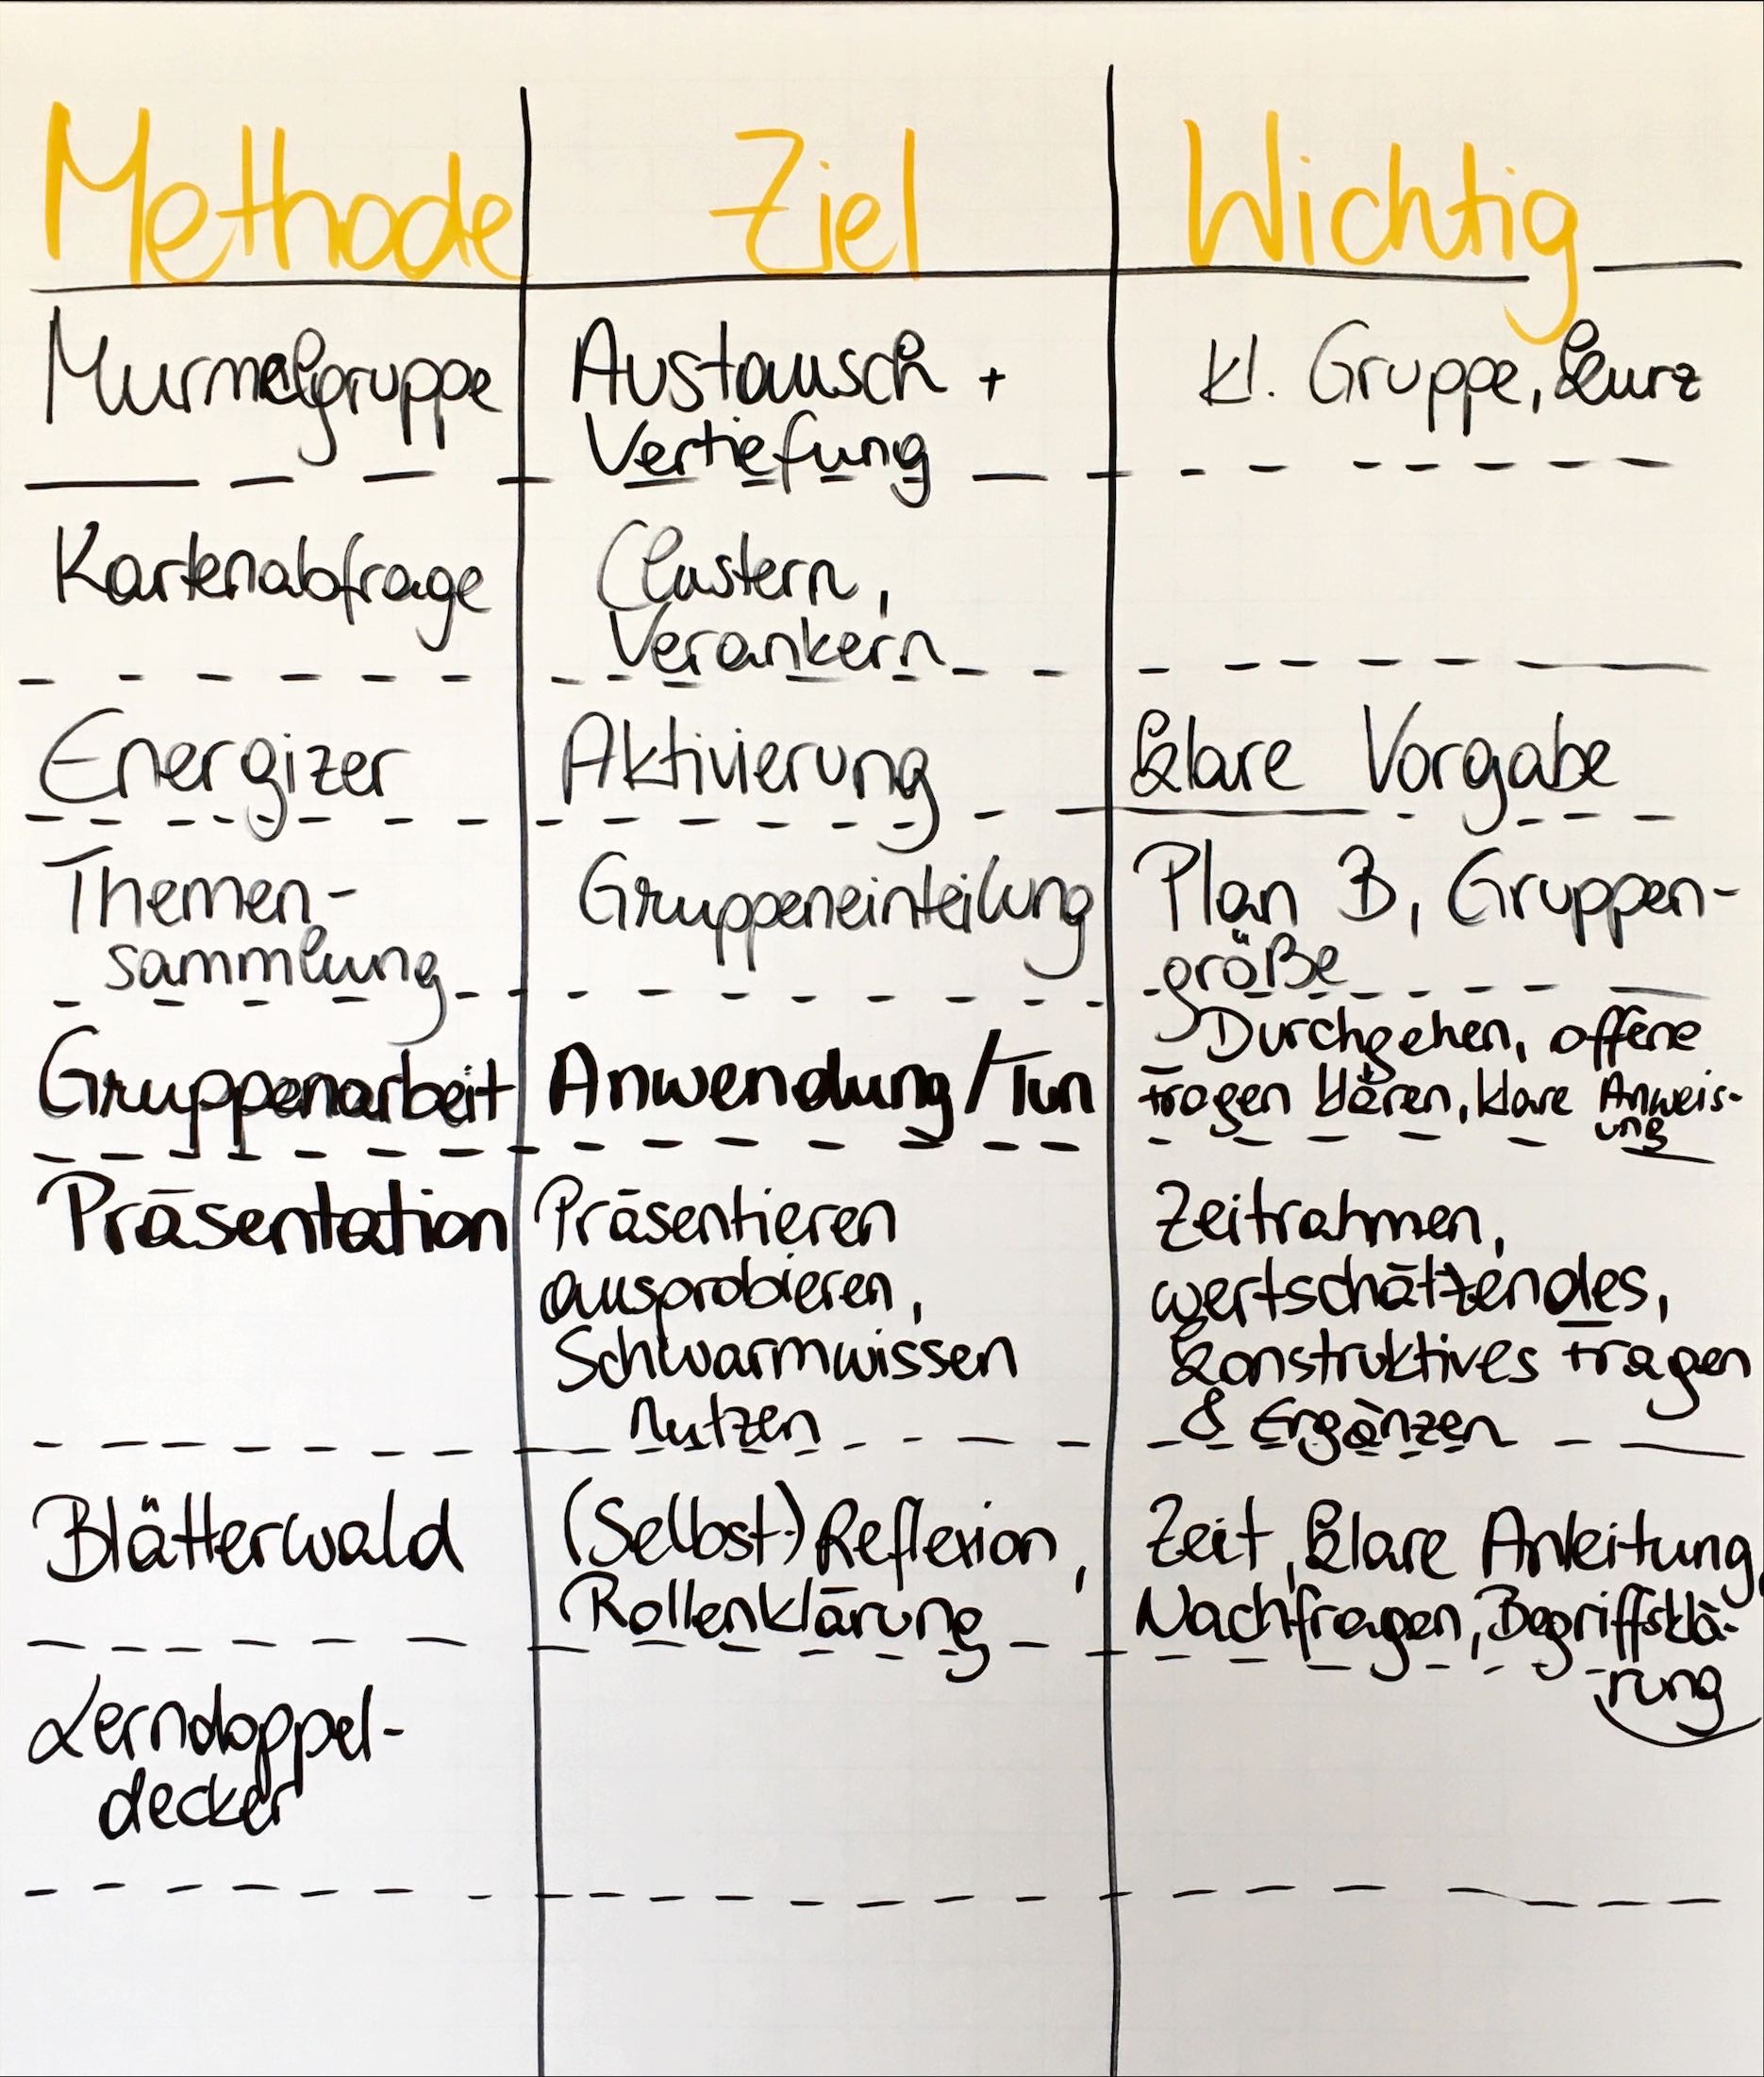 Methode Ziel Wichtig
Murmelgruppe Austausch + kl. Gruppe, kurz
Vertiefung
Kartenabfrage Clustern,
Verankern
Energizer Aktivierung klare Vorgabe
Themen- Gruppeneinteilung Plan B, Gruppen-
sammlung größe
Durchgehen, offene
Gruppenarbeit Anwendung/Tun Fragen klären, klare Anweis-
ung
Präsentation Präsentieren Zeitrahmen,
ausprobieren, wertschätzendes,
Schwarmwissen konstruktives Fragen
nutzen & Ergänzen
Blätterwald (Selbst-)Reflexion, Zeit, klare Anleitung,
Rollenklärung Nachfragen, Begriffsklä-
rung
Lerndoppel-
decker